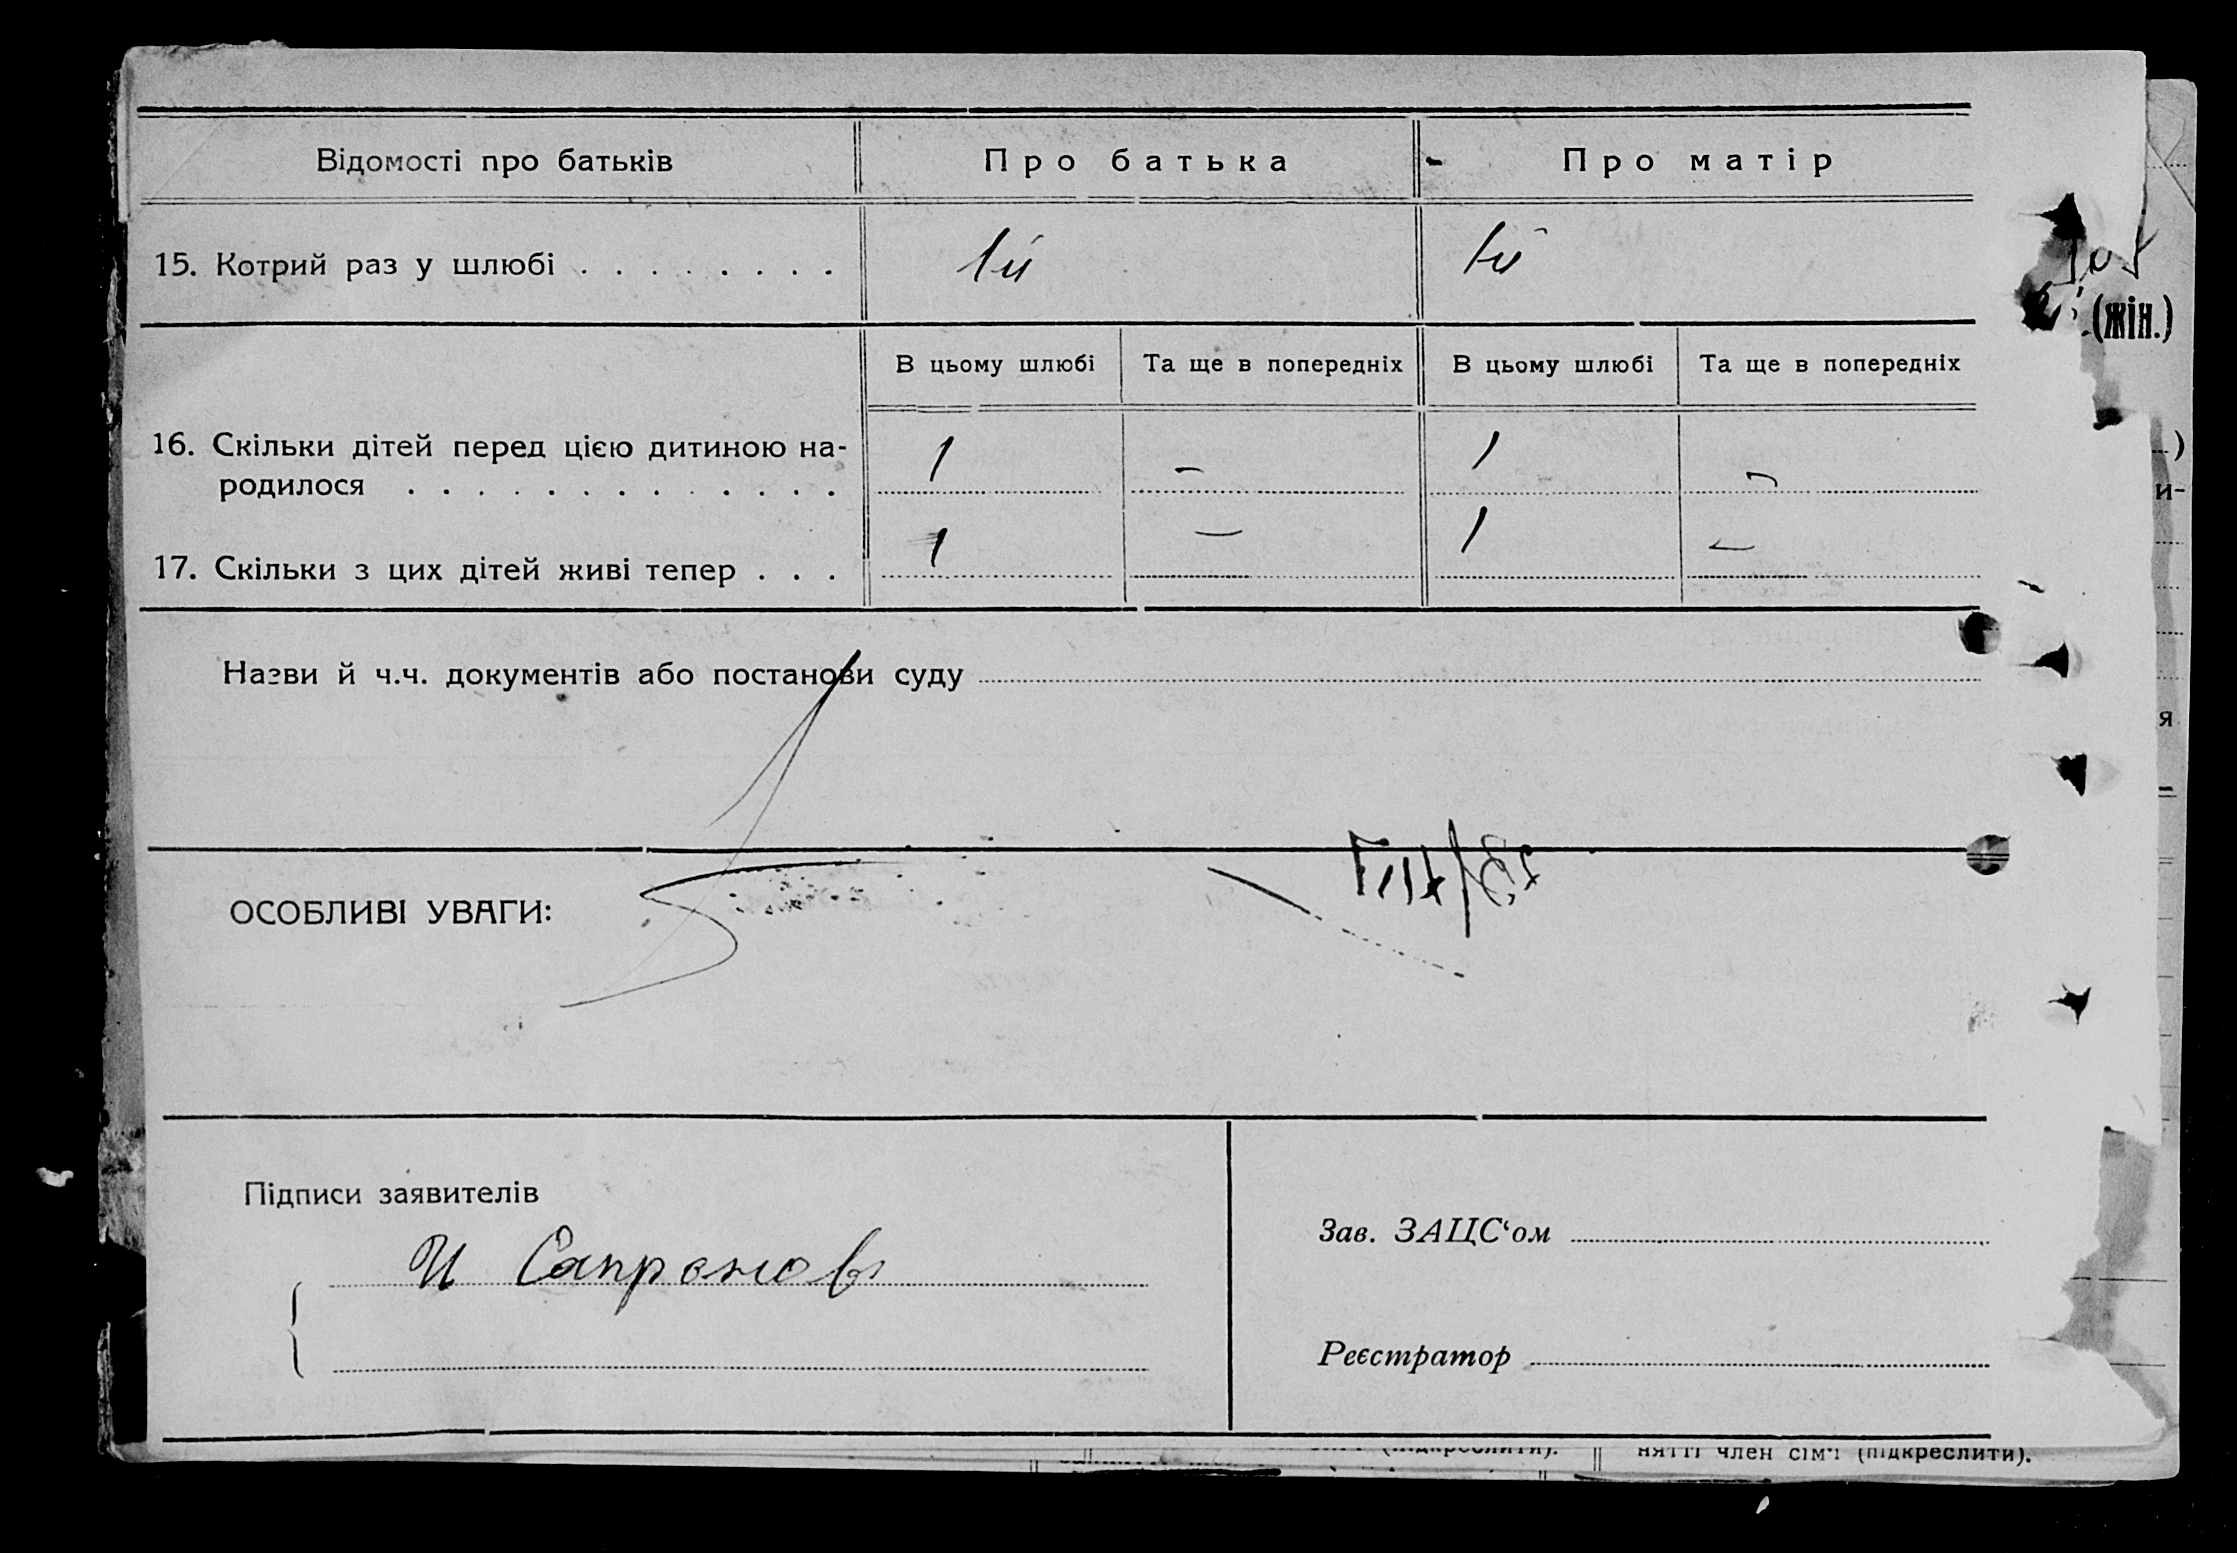 Відомості про батьків Про батька Про матір
15. Котрий раз у шлюбі . . . . . . . . 1й 1й
(жін.)
В цьому шлюбі Та ще в попередніх В цьому шлюбі Та ще в попередніх
16. Скільки дітей перед цією дитиною на- 1 - 1 -
родилося . . . . . . . . . . . . .
17. Скільки з цих дітей живі тепер . . . 1 - 1 -
Назви й ч.ч. документів або постанови суду
ОСОБЛИВІ УВАГИ:
Підписи заявителів
И Сапронов
Зав. ЗАЦС‘ом
Реєстратор
член сім'ї (підкреслити).